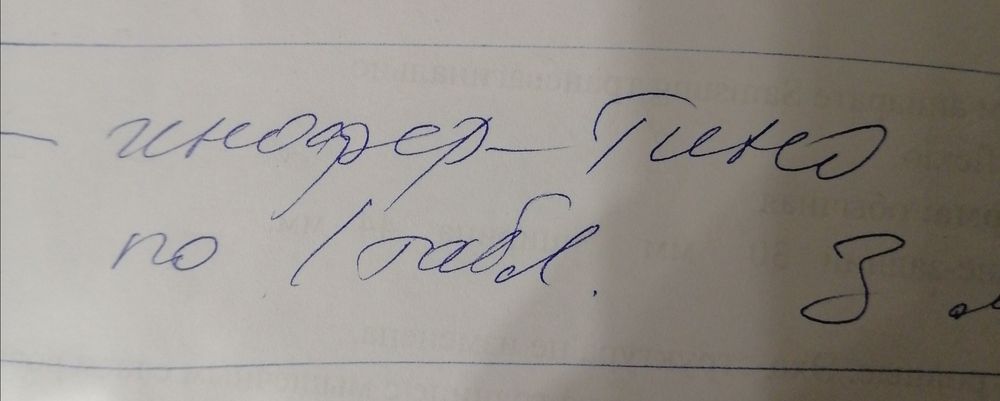 - инофер- Гино
по 1 табл. 3 м